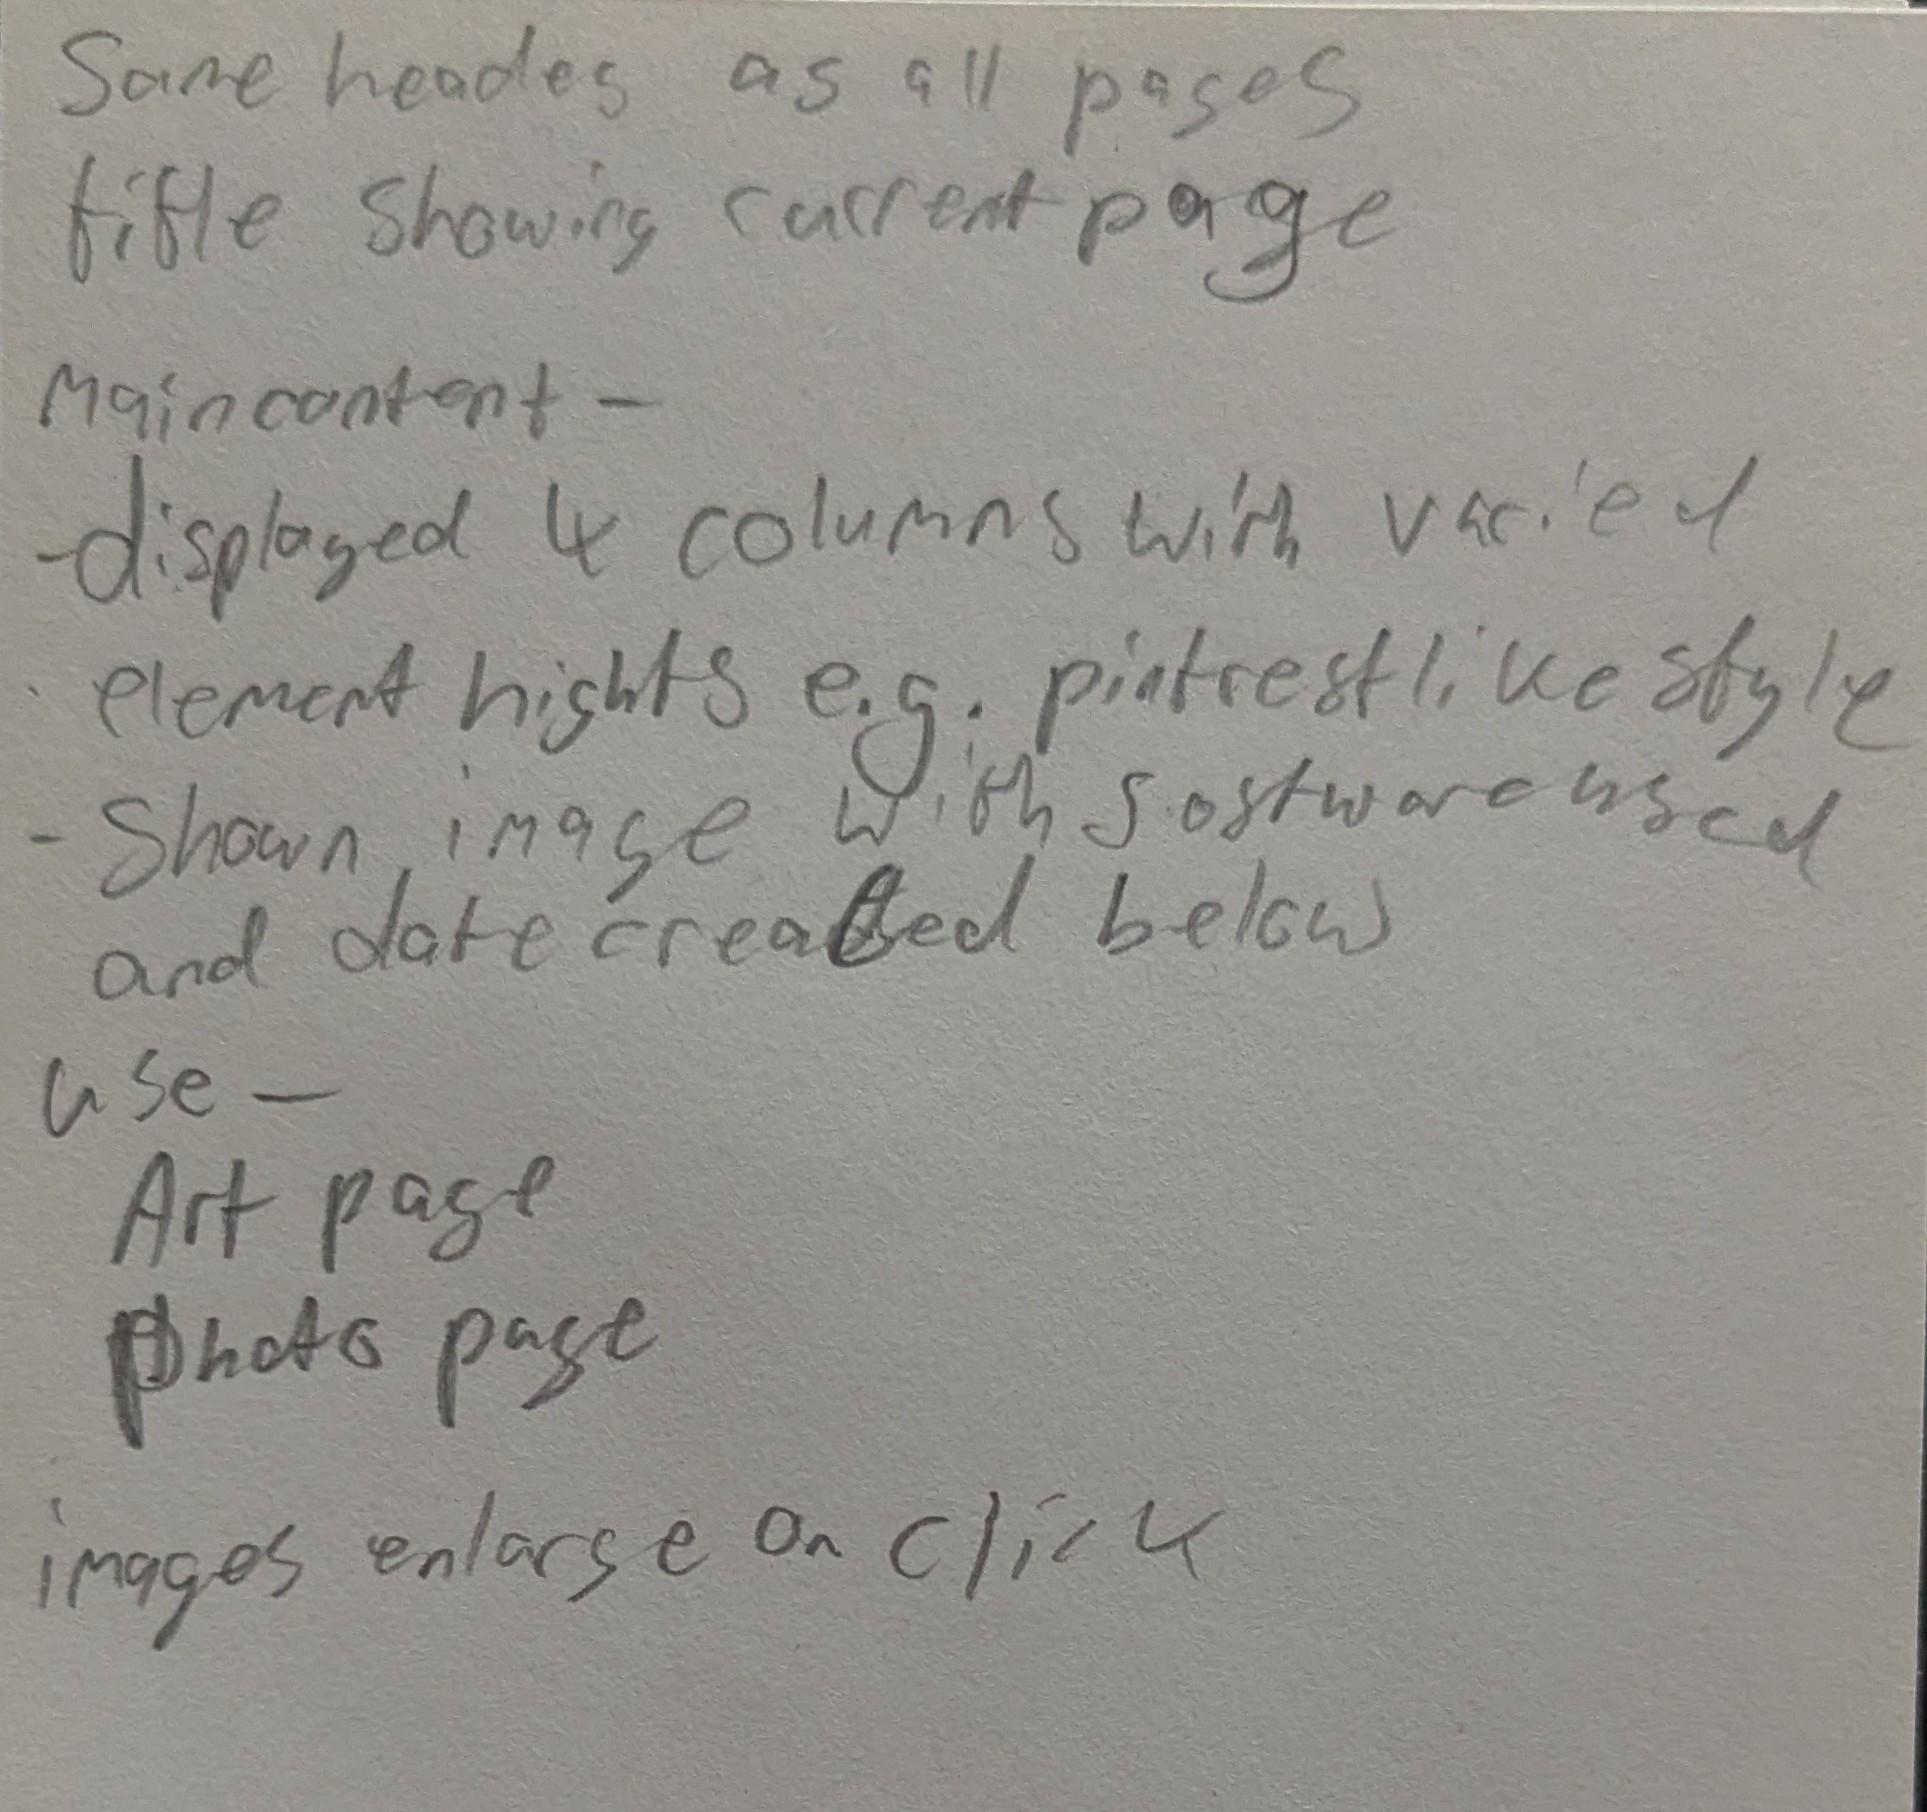 Same header as all pages
title showing current page
Main content -
- displayed 4 columns with varied
element hights e.g. pintrest like style
- Shown image with software used
and date created below
use -
Art page
Photo page
images enlarge on click